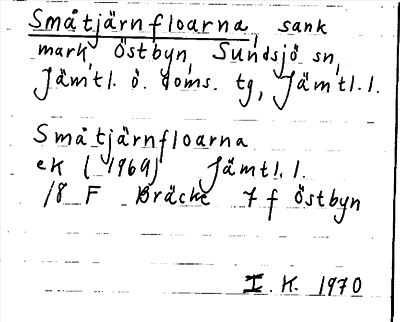 Småtjärnfloarna, sank
mark, Östbyn, Sundsjö sn,
Jämtl. ö. doms. tg, Jämtl. l.
Småtjärnfloarna
ek (1969) Jämtl. l.
18 F Bräcke 7 f Östbyn
I. K. 1970